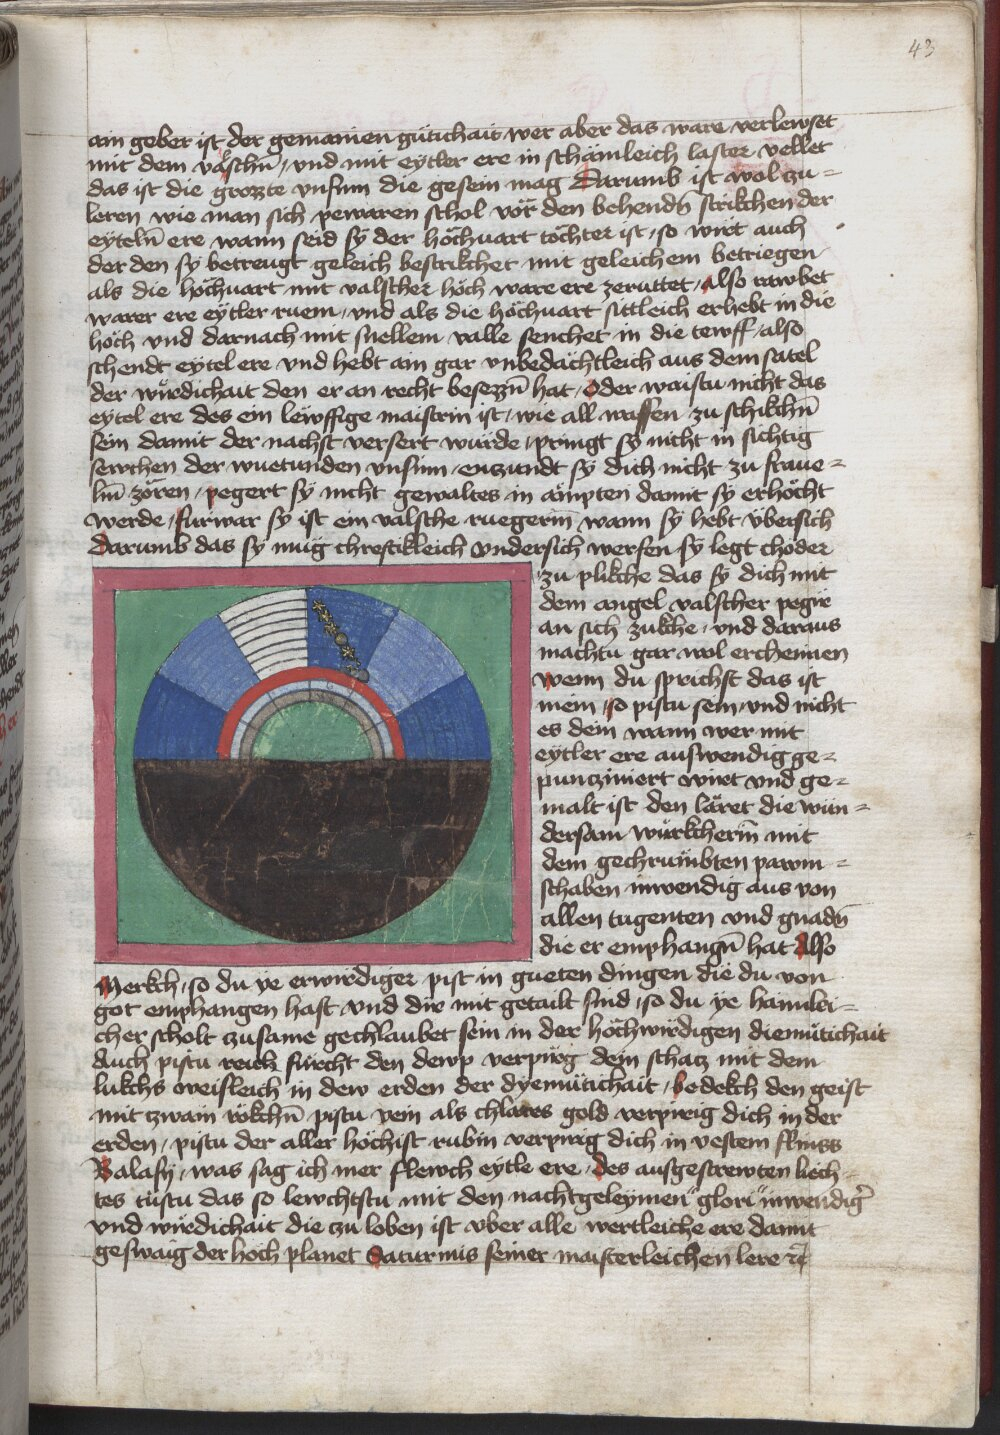 43
ain geber ist der gemainen gütichait wer aber das ware verlewset
mit dem valschn̄ / vnd mit eytler ere in schämleich laster vellet
das ist die grozzte vnsinn die gesein mag Darumb ist wol zu =
leren wie man sich pewaren schol vor den behendn̄ strikchen der
eyteln̄ ere wann seid sy der höchuart töchter ist / so wirt auch
der den sy betreugt geleich bestrikchet mit geleichem betriegen
als die höchuart mit valscher höch ware ere zeruttet / Also rawbet
warer ere eytler ruem / vnd als die höchuart sittleich erhebt in die
höch vnd darnach mit snellem valle senchet in die tewff / also
schendt eytel ere vnd hebt ain gar vnbedächtleich aus dem satel
der wirdichait den er an recht besezzn̄ hat / Oder waistu nicht das
eytel ere des ein lewffige maistrin ist / wie all waffen zu schikchn̄
sein damit der nachst versert wurde / pringt sy nicht in sichtig
serchen der wuetunden vnsinn / enzundt sy dich nicht zu fraue =
lin̄ zören / pegert sy nicht gewaltes in ämpten damit sy erhöcht
werde / furwar sy ist ein valsche ruegerin̄ wann sy hebt vbersich
Darumb das sy mug chreftikleich vndersich werfen sy legt choder
zu plikche das sy dich mit
dem angel valscher pegir
an sich zukche / vnd daraus
machtu gar wol erchennen
wenn du sprichst das ist
mein / so pistu sein / vnd nicht
es dein wann wer mit
eytler ere auswendig ge =
puncziniert wirt vnd ge =
malt ist den läret die wun =
dersam würkcherin̄ mit
dem gechrumbten pawm =
schaben inwendig aus von
allen tugenten vnd gnadn̄
die er emphangn̄ hat Also
Merkch / so du ye erwirdiger pist in gueten dingen die du von
got emphangen hast vnd dir mit getailt sind / so du ye hämlei =
cher scholt zusame gechlaubet sein in der höchwirdigen diemütichait
Auch pistu reich fürcht den dewp verpirg dein schacz mit dem
lukchs weisleich in dew erden der dyemütichait / bedekch den geist
mit zwain rökchn̄ pistu vein als chlares gold verpirig dich in der
erden / pistu der aller höchist rubin verpirig dich in vestem flinss
Balasy / was sag ich mer flewch eytle ere / des ausgestrewten liech =
tes tüstu das so lewchtstu mit den nachtgeleymen " glori " inwendig̉
vnd wirdichait die zu loben ist vber alle wertleiche ere damit
geswaig der hoch planet Saturnus seiner maisterleichen lere ꝛc̄